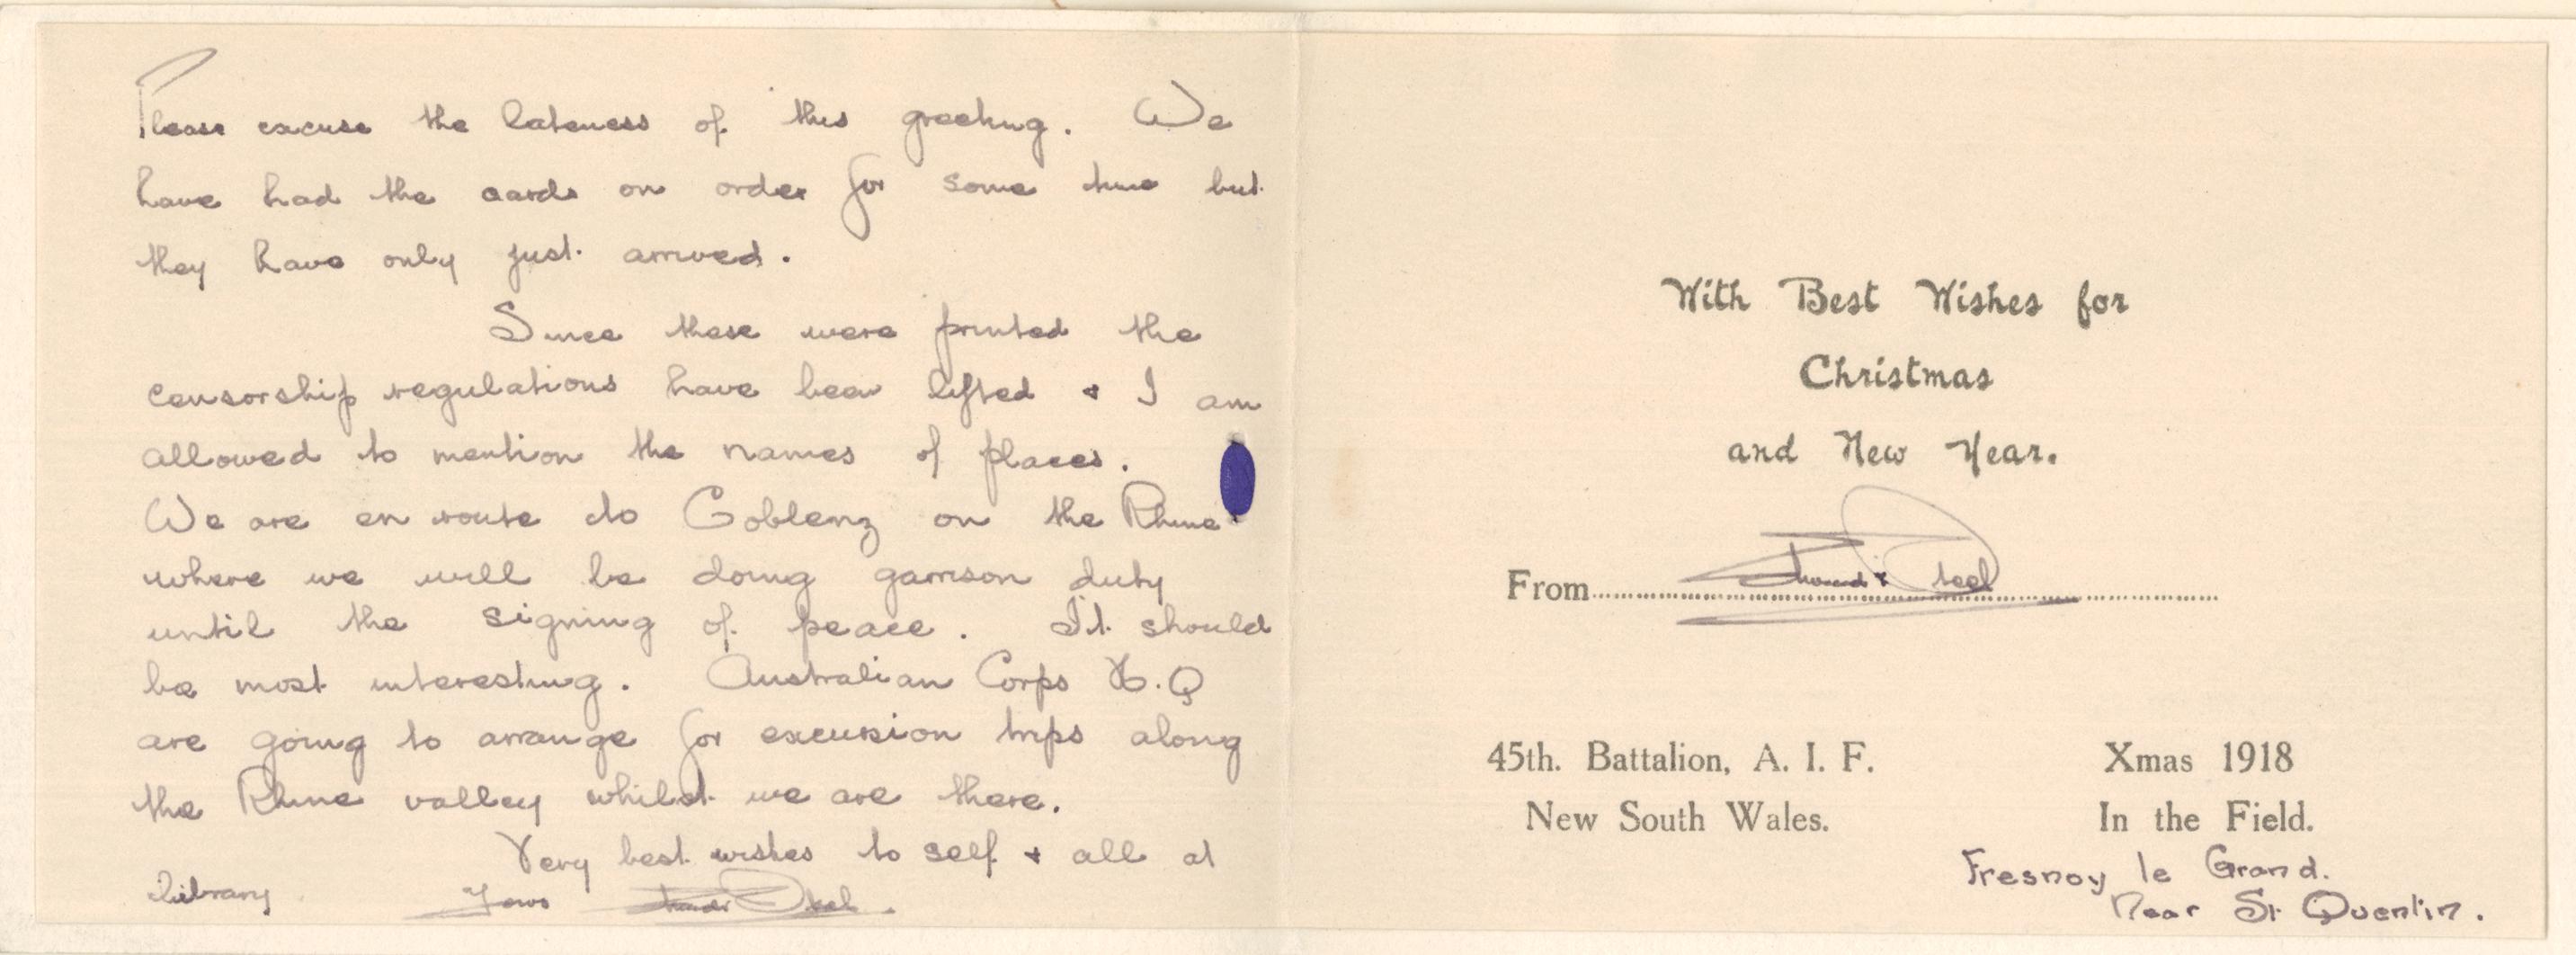 Please excuse the lateness of this greeting. We
have had the cards on order for some time but
they have only just arrived.
Since these were printed the
censorship regulations have been lifted & I am
allowed to mention the names of places.
We are en route to Coblenz on the Rhine
where we will be doing garrison duty
until the signing of peace. It should
be most interesting. Australian Corps H.Q
are going to arrange for excursion trips along
the Rhine valley whilst we are there.
Very best wishes to self & all at
Library
Yours
With Best Wishes for
Christmas
and New Year.
From
45th. Battalion, A. I. F.
New South Wales.
Xmas 1918
In the Field.
Fresnoy le Grand.
Near St Quentin.